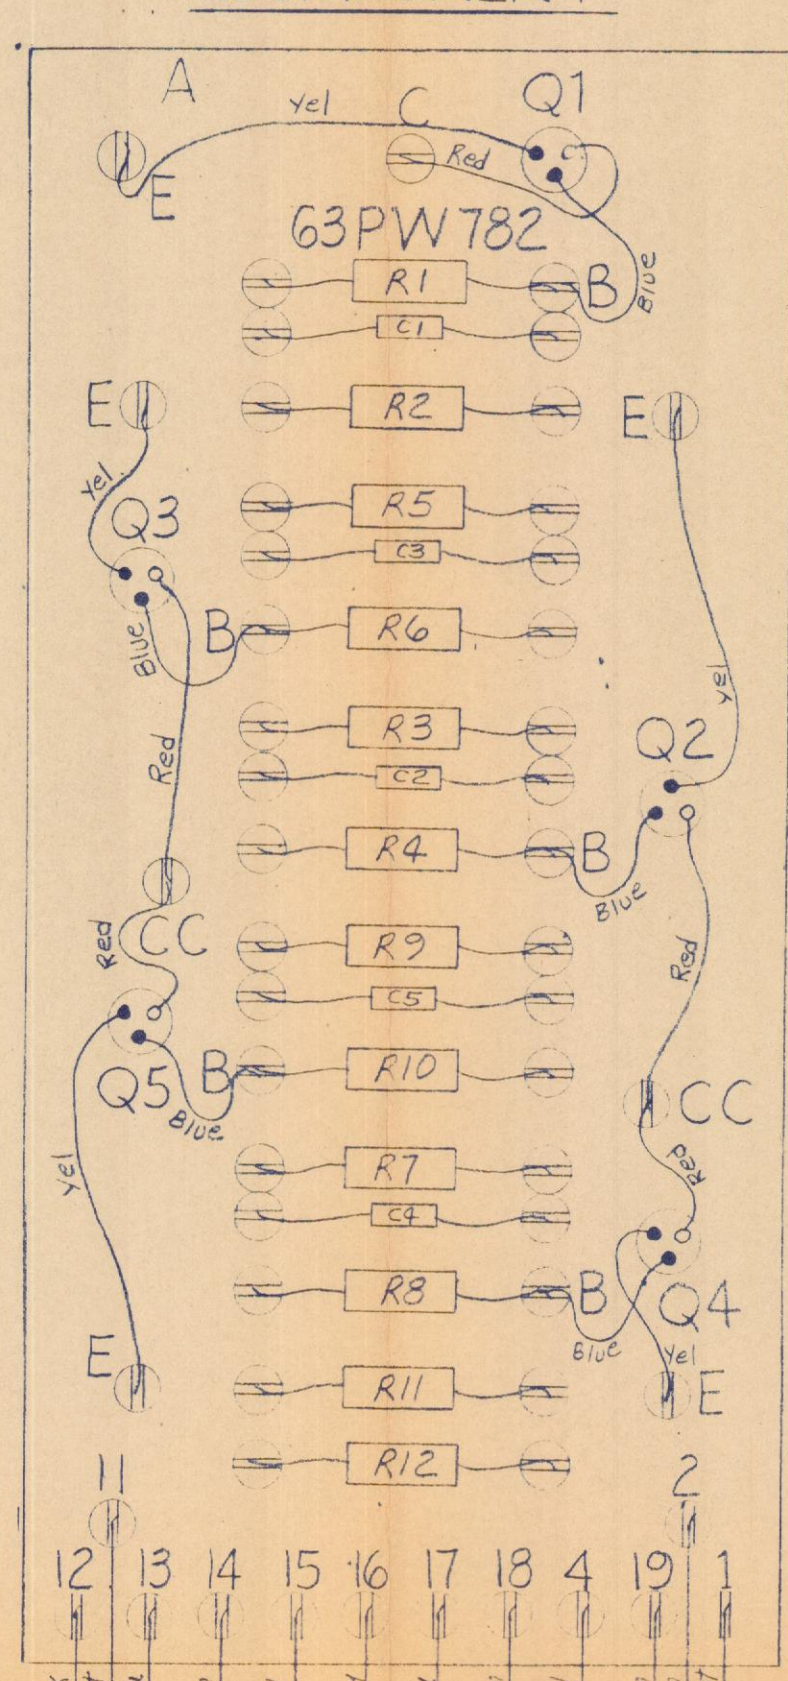 A Yel C Q1
Red C
E
63PW782
R1 B Blue
C1
E R2 E
Yel
Q3 R5
C3
Blue B R6
Yel
Red R3 Q2
C2
R4 B
Blue
Red CC R9 Red
C5
Q5 B R10
Blue CC
Yel R7 Red
C4
R8 B Q4
Blue Yel
E R11 E
R12
11 2
12 13 14 15 16 17 18 4 19 1